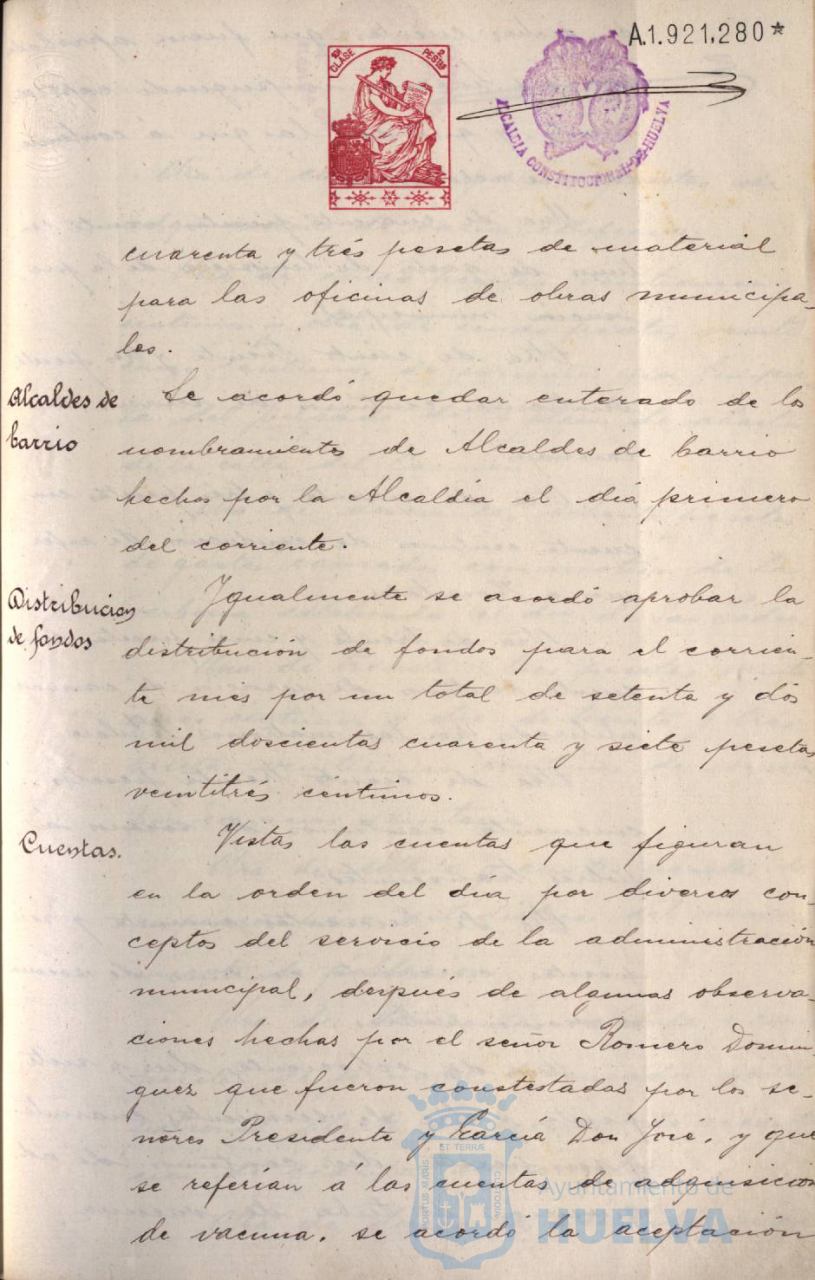 A.1.921.280*
10ª CLASE 2 PESETAS
ALCALDIA CONSTITUCIONAL-DE-HUELVA
cuarenta y trés pesetas de material
para las oficinas de obras municipa-
les.
Alcaldes de
barrio
Se acordó quedar enterado de los
nombramientos de Alcaldes de barrio
hechos por la Alcaldía el día primero
del corriente.
Distribucion
de fondos
Igualmente se acordó aprobar la
distribución de fondos para el corrien-
te mes por un total de setenta y dós
mil doscientas cuarenta y siete pesetas
veintitrés céntimos.
Cuentas.
Vistas las cuentas que figuran
en la orden del día por diversos con-
ceptos del servicio de la administración
municipal, después de algunas observa-
ciones hechas por el señor Romero Domin
guez que fueron constestadas por los se-
ñores Presidente y García Don José, y que
se referían á las cuentas de adquisicion
de vacuna, se acordó la aceptación
PORTUS MARIS ET TERRE CUSTODIA
Ayuntamiento de
HUELVA